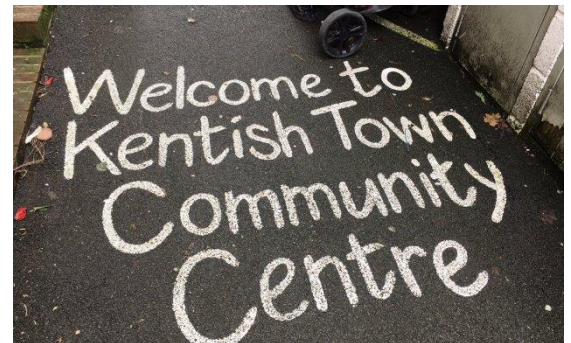 Welcome to
Kentish Town
Community
Centre